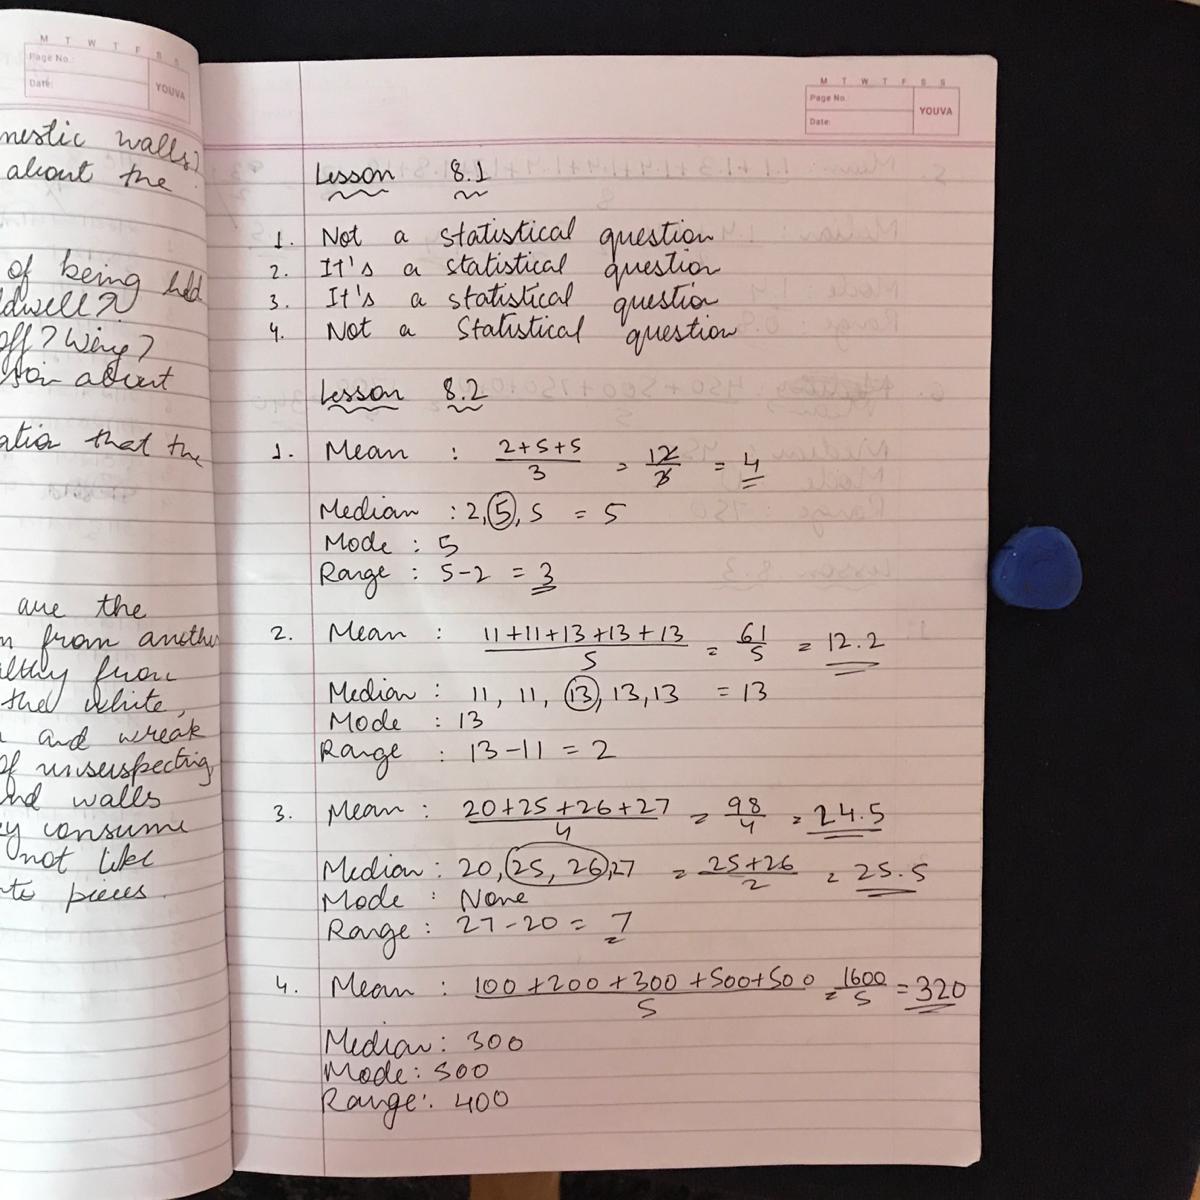 M T W T F S S
Page No.:
Date:
YOUVA
nestic walls?
about the
of being held
dwell?
off? Wing?
about
ation that the
are the
from another
from
the white,
and wreak
of unsuspecting
and walls
consume
not like
pieces.
M T W T F S S
Page No.
Date:
YOUVA
Lesson 8.1
1. Not a statistical question
2. It's a statistical question
3. It's a statistical question
4. Not a Statistical question
Lesson 8.2
1. Mean : 2+5+5/3 = 12/3 = 4
Median : 2, 5, 5 = 5
Mode : 5
Range : 5-2 = 3
2. Mean : 11+11+13+13+13/5 = 61/5 = 12.2
Median : 11, 11, 13, 13, 13 = 13
Mode : 13
Range : 13-11 = 2
3. Mean : 20+25+26+27/4 = 98/4 = 24.5
Median : 20, 25, 26, 27 = 25+26/2 = 25.5
Mode : None
Range : 27-20 = 7
4. Mean : 100+200+300+500+500/5 = 1600/5 = 320
Median : 300
Mode : 500
Range : 400